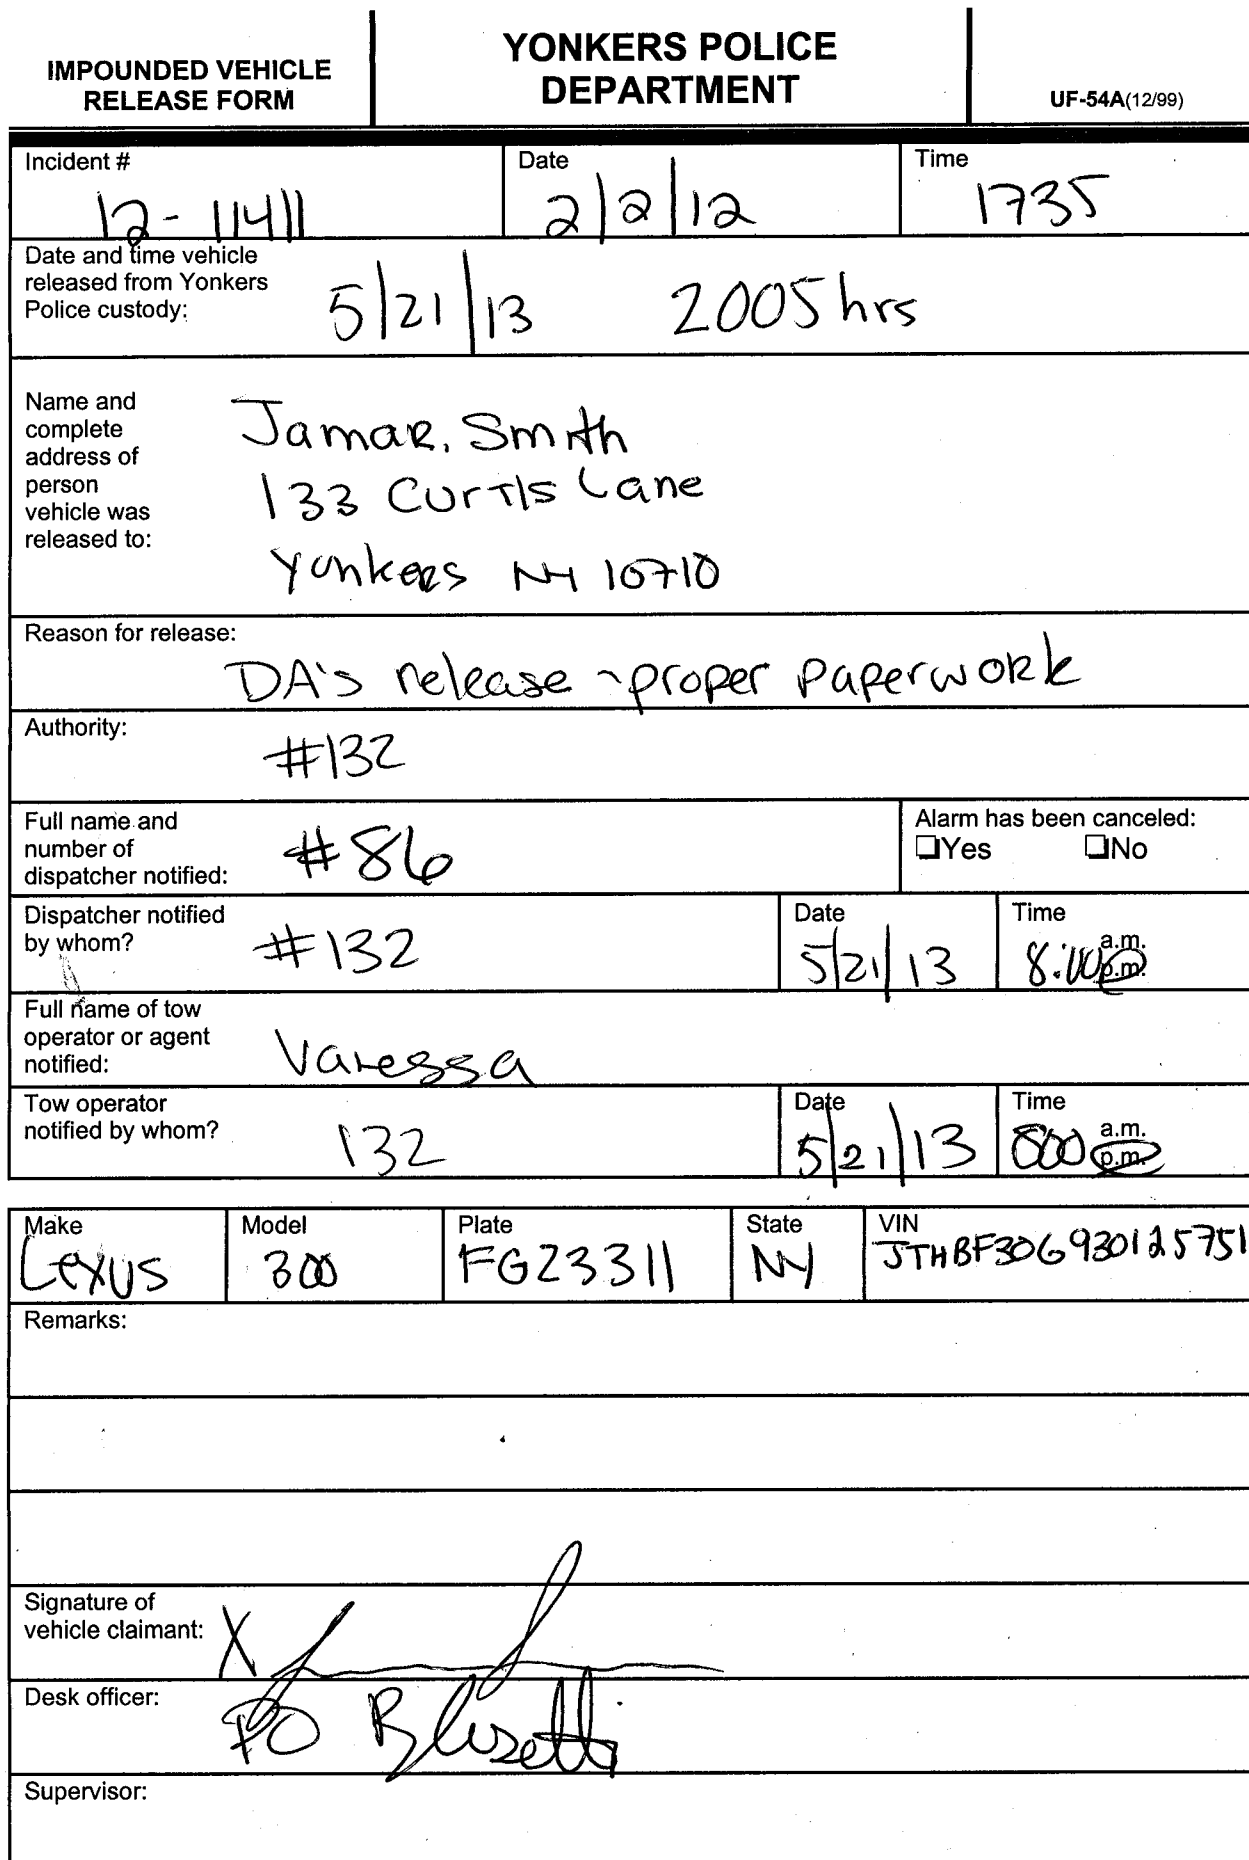 IMPOUNDED VEHICLE
RELEASE FORM
YONKERS POLICE
DEPARTMENT
UF-54A(12/99)
Incident #
12-11411
Date
2/2/12
Time
1735
Date and time vehicle
released from Yonkers
Police custody:
5/21/13 2005 hrs
Name and
complete
address of
person
vehicle was
released to:
Jamar. Smith
133 Curtis Lane
Yonkers NY 10710
Reason for release:
DA's release - proper paperwork
Authority:
#132
Full name and
number of
dispatcher notified:
#86
Alarm has been canceled:
❏Yes ❏No
Dispatcher notified
by whom?
#132
Date
5/21/13
Time
8:00
a.m.
p.m.
Full name of tow
operator or agent
notified:
Vanessa
Tow operator
notified by whom?
132
Date
5/21/13
Time
800
a.m.
p.m.
Make
Lexus
Model
300
Plate
FGZ3311
State
NY
VIN
JTHBF30G930125751
Remarks:
Signature of
vehicle claimant:
X
Desk officer:
PO
Supervisor: